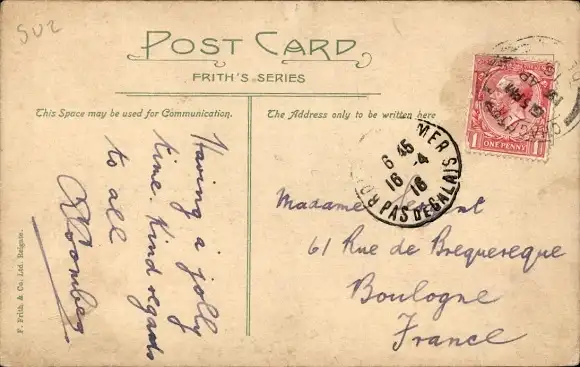 502
POST CARD
FRITH'S SERIES
This Space may be used for Communication.
The Address only to be written here
Having a jolly
time. Kind regards
to all
MER
6 45
16-4
16
PAS DE CALAIS
1 ONE PENNY 1
Madame
61 Rue de Bequereque
Boulogne
France
F. Frith & Co. Ltd. Reigate.